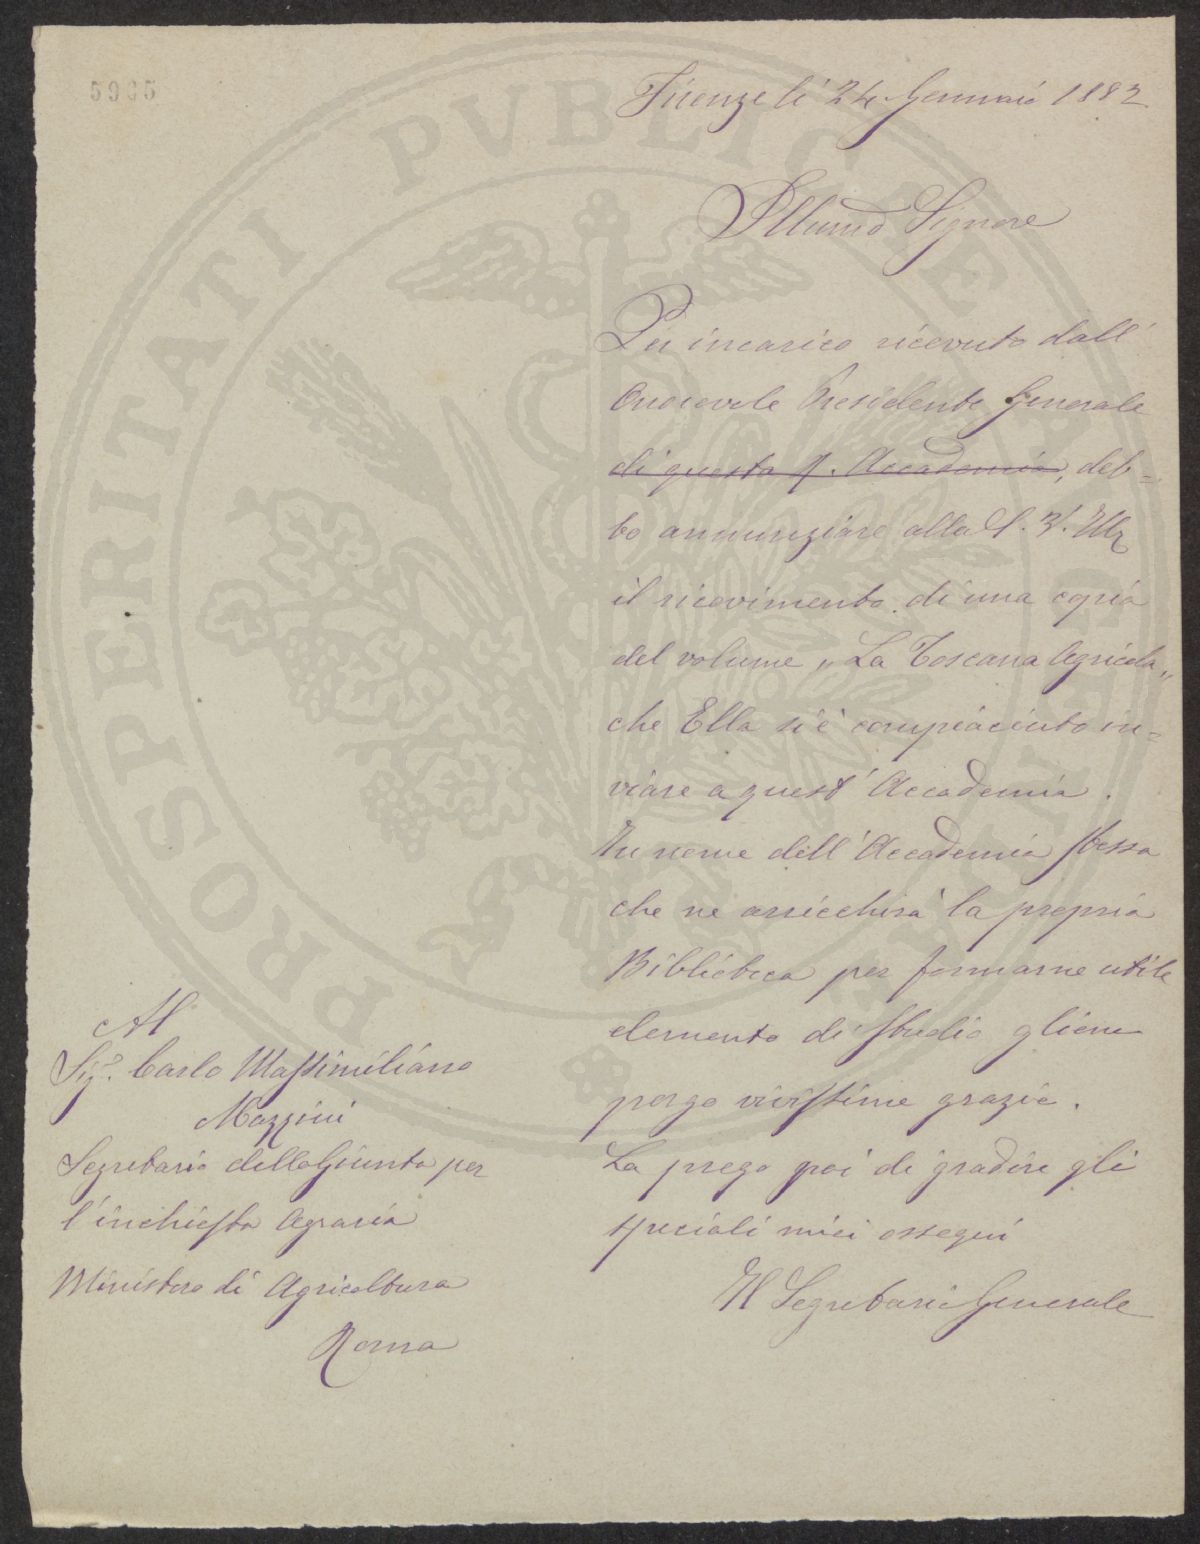 5965
Firenze li 24 Gennaio 1882
Illumo Signore
Per incarico ricevuto dall'
Onorevole Presidente Generale
di questa R. Accademia, deb=
bo annunziare alla S. V. Illa
il ricevimento di una copia
del volume „La Toscana Agricola„
che Ella si è compiaciuto in=
viare a quest'Accademia.
In nome dell'Accademia stessa
che ne arricchirà la propria
Biblioteca per formarne utile
elemento di studio gliene
porgo vivissime grazie.
La prego poi di gradire gli
speciali miei ossequi
Il Segretario Generale
Al
Sigr. Carlo Massimiliano
Mazzini
Segretario della Giunta per
l'inchiesta Agraria
Ministero di Agricoltura
Roma
PROSPERITATI PVBLICAE